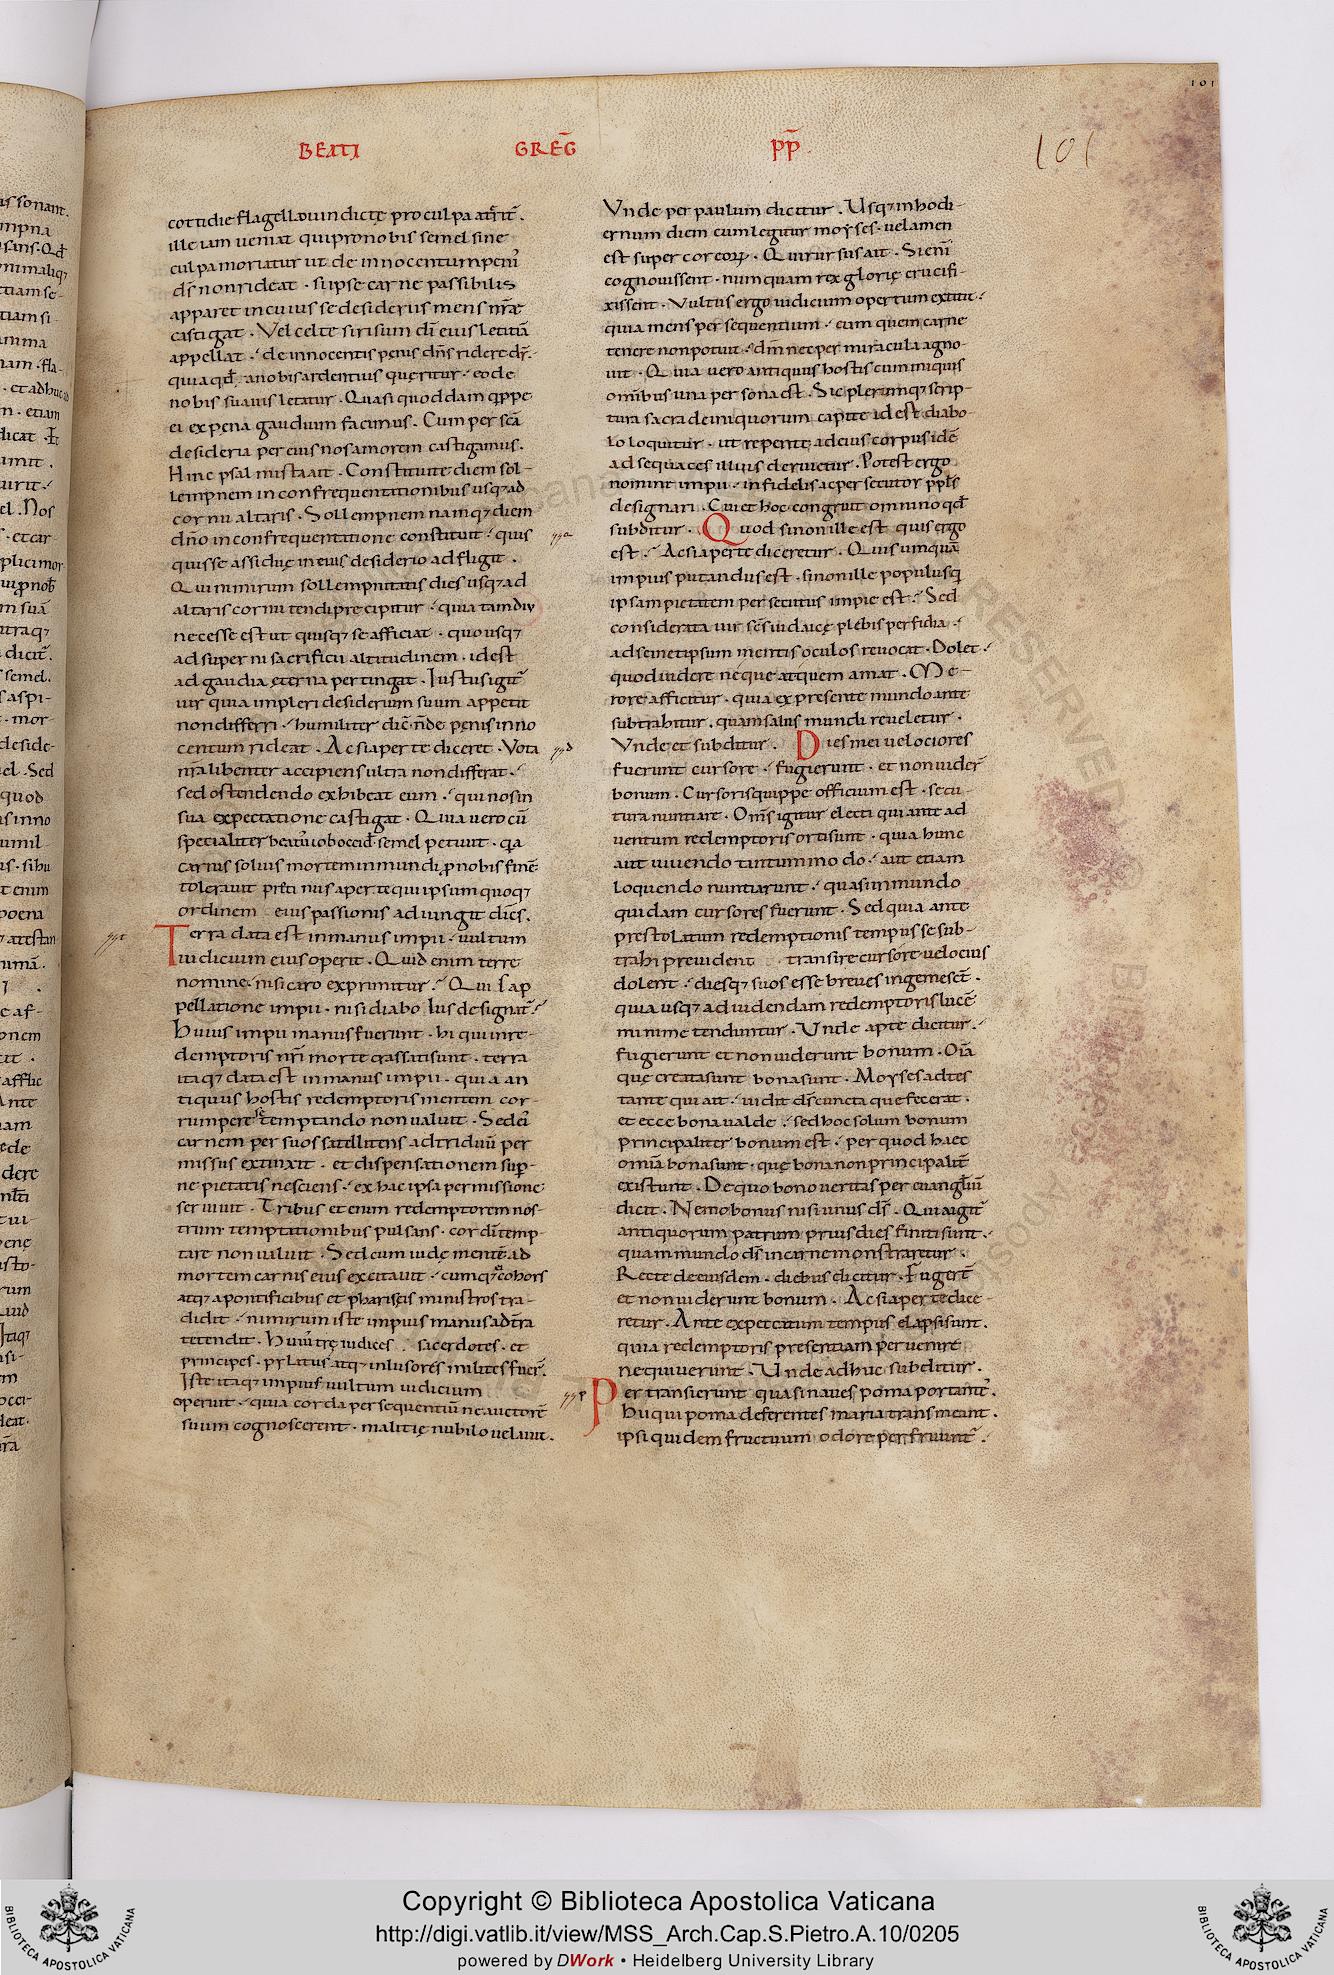 BEATI GREḠ P̄P̄.
101
101
cottidie flagello uindictę pro culpa atterit̄.
ille iam ueniat qui pro nobis semel sine
culpa moriatur ut de innocentum penis
d̄s non rideat · si ipse carne passibilis
apparet in cuius se desideriis mens nr̄a
castigat · Vel certe si risum dī eius letitiā
appellat · de innocentis penis dn̄s ridere dr̄ ·
quia qđ a nobis ardentius quęritur · eo de
nobis suauius letatur · Quasi quoddam q̄ppe
ei ex pęna gaudium facimus · Cum per sc̄a
desideria per eius nos amorem castigamus ·
Hinc psalmista ait · Constituite diem sol-
lempnem in confrequentationibus usq; ad
cornu altaris · Sollempnem namq; diem
dn̄o in confrequentatione constituit · quis
quis se assidue in eius desiderio adfligit ·
Qui nimirum sollempnitatis dies usq; ad
altaris cornu tendi precipitur · quia tamdiu
necesse est ut quisq; se afficiat · quousq;
ad superni sacrificii altitudinem · id est
ad gaudia ęterna pertingat · Iustus igit̄
uir quia impleri desiderium suum appetit
non differri · humiliter dic̄ n̄ de penis inno
centum rideat · Ac si aperte diceret · Vota
nr̄a libenter accipiens ultra non differat ·
sed ostendendo exhibeat eum · qui nos in
sua expectatione castigat · Quia uero cū
specialiter beatus iob occid̄ semel petiuit · q̄a
carnis solius mortem in mundi p nobis fine
tolerauit protinus aperte qui ipsum quoq;
ordinem eius passionis adiungit dicēs ·
Terra data est in manus impii · uultum
iudicum eius operit · Quid enim terre
nomine · nisi caro exprimitur · Qui ł ap
pellatione impii · nisi diabolus designat̄ ·
Huius impii manus fuerunt · hi qui in re-
demptoris nr̄i morte crassati sunt · terra
itaq; data est in manus impii · quia an
tiquus hostis redemptoris mentem cor-
rumpere per se temptando non ualuit · Sed ei
carnem per suos satellites ad triduū per
missus extinxit · et dispensationem sup̄-
ne pietatis nesciens · ex hac ipsa permissione
seruiuit · Tribus etenim redemptorem nos-
trum temptationibus pulsans · cor dī temp-
tare non ualuit · Sed cum iudę mentē ad
mortem carnis eius excitauit · cumq; ei cohors
atq; a pontificibus et phariseis ministros tra-
didit · nimirum iste impius manus ad terra
tetendit · Huius terrę iudices · sacerdotes · et
principes · pylatus atq; inlusores milites fuer̄ ·
Iste itaq; impius uultum iudicium
operuit · quia corda persequentiū ne auctorē
suum cognoscerent · malitię nubilo uelauit ·
Vnde per paulum dicitur · Usq; in hodi-
ernum diem cum legitur moyses · uelamen
est super cor eoꝝ · Qui rursus ait · Si enī
cognouissent · numquam rex glorię crucifi-
xissent · Vultus ergo iudicium opertum extitit ·
quia mens persequentium · eum quem carne
tenere non potuit · dm̄ nec per miracula agno-
uit · Quia uero antiquus hostis cum iniquis
omnibus una persona est · Sic plerumq; scrip-
tura sacra de iniquorum capite id est diabo-
lo loquitur · ut repente ad eius corpus idē
ad sequaces illius deriuetur · Potest ergo
nomine impii · infidelis ac persecutor ppl̄s
designari · Cui et hoc congruit omnino qđ
subditur · Quod si non ille est quis ergo
est · Ac si aperte diceretur · Quis umquā
impius putandus est · si non ille populus q
ipsam pietatem persecutus impie est · Sed
considerata uir sc̄s iudaicę plebis perfidia ·
ad semetipsum mentis oculos reuocat · Dolet ·
quod uidere nequeat quem amat · Me-
rore afficitur · quia ex presente mundo ante
subtrahitur · quam salus mundi reueletur ·
Vnde et subditur · Dies mei uelociores
fuerunt cursore · fugierunt · et non uider̄
bonum · Cursoris quippe officium est · secu-
tura nuntiare · Om̄s igitur electi qui ante ad
uentum redemptoris orti sunt · quia hunc
aut uiuendo tantummodo · aut etiam
loquendo nuntiarunt · quasi in mundo
quidam cursores fuerunt · Sed quia ante
prestolatum redemptionis tempus se sub-
trahi preuident transire cursore uelocius
dolent · diesq; suos esse breues ingemesct̄ ·
quia usq; ad uidendam redemptoris lucē
minime tenduntur · Vnde apte dicitur ·
fugierunt et non uiderunt bonum · Oīa
que creata sunt bona sunt · Moyse adtes
tante qui ait · uidit ds̄ cuncta que fecerat ·
et ecce bona ualde · sed hoc solum bonum
principaliter bonum est · per quod haec
omīa bona sunt · quę bona non principalit̄
existunt · De quo bono ueritas per euanglīū
dicit · Nemo bonus nisi unus ds̄ · Quia igit̄
antiquorum patrum prius dies finiti sunt ·
quam mundo ds̄ in carne monstraretur ·
Recte de eiusdem · diebus dicitur · Fuger̄
et non uiderunt bonum · Ac si aperte dice-
retur · Ante expectatum tempus elapsi sunt ·
quia redemptoris presentiam peruenire
nequiuerunt · Vnde adhuc subditur ·
Pertransierunt quasi naues poma portant̄ ·
Hii qui poma deferentes maria transmeant ·
ipsi quidem fructuum odore perfruunt̄ ·
Copyright © Biblioteca Apostolica Vaticana
http://digi.vatlib.it/view/MSS_Arch.Cap.S.Pietro.A.10/0205
powered by DWork • Heidelberg University Library
BIBLIOTECA APOSTOLICA VATICANA
BIBLIOTECA APOSTOLICA VATICANA